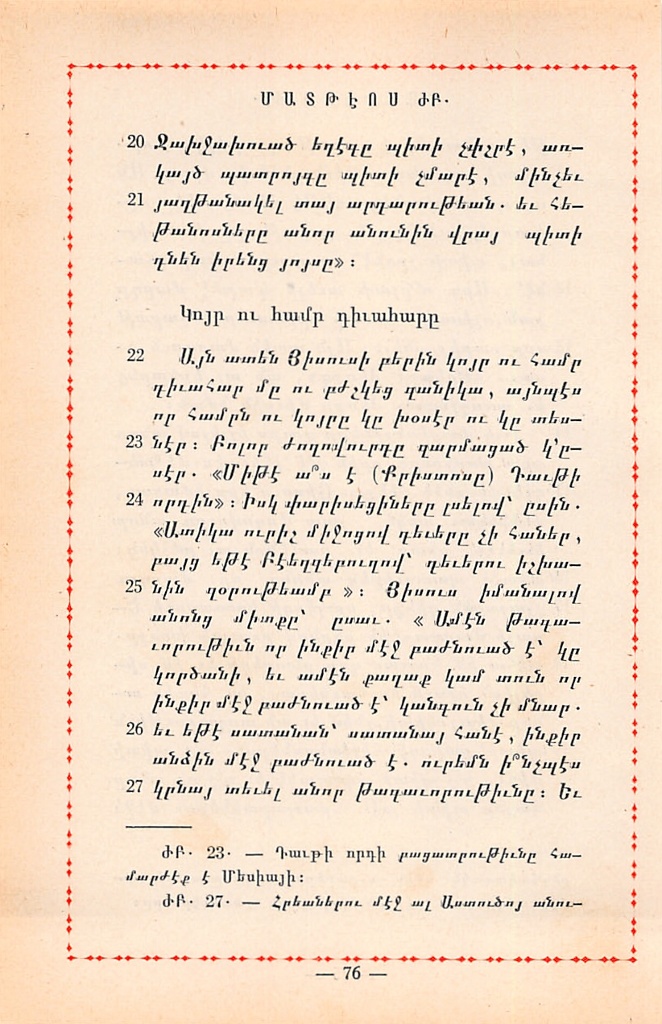 ՄԱՏԹԷՈՍ ԺԲ.
20 Ջախջախուած եղէգը պիտի չփշրէ, առ—
կայծ պատրոյգը պիտի չմարէ, մինչեւ
21 յաղթանակել տայ արդարութեան. եւ հե—
թանոսները անոր անունին վրայ պիտի
դնեն իրենց յոյսը»։
Կոյր ու համր դիւահարը
22 Այն ատեն Յիսուսի բերին կոյր ու համր
դիւահար մը ու բժշկեց զանիկա, այնպէս
որ համրն ու կոյրը կը խօսէր ու կը տես—
23 նէր։ Բոլոր ժողովուրդը զարմացած կ՚ը—
սէր. «Միթէ ա՞ս է (Քրիստոսը) Դաւթի
24 որդին»։ Իսկ փարիսեցիները լսելով՝ ըսին.
«Ատիկա ուրիշ միջոցով դեւերը չի հաներ,
բայց եթէ Բէեղզեբուղով՝ դեւերու իշխա—
25 նին զօրութեամբ »։ Յիսուս իմանալով
անոնց միտքը՝ ըսաւ. « Ամէն թագա—
ւորութիւն որ ինքիր մէջ բաժնուած է՝ կը
կործանի, եւ ամէն քաղաք կամ տուն որ
ինքիր մէջ բաժնուած է՝ կանգուն չի մնար.
26 եւ եթէ սատանան՝ սատանայ հանէ, ինքիր
անձին մէջ բաժնուած է. ուրեմն ի՞նչպէս
27 կրնայ տեւել անոր թագաւորութիւնը։ Եւ
ԺԲ. 23. — Դաւթի որդի բացատրութիւնը հա—
մարժէք է Մեսիայի։
ԺԲ. 27. — Հրեաներու մէջ ալ Աստուծոյ անու—
— 76 —